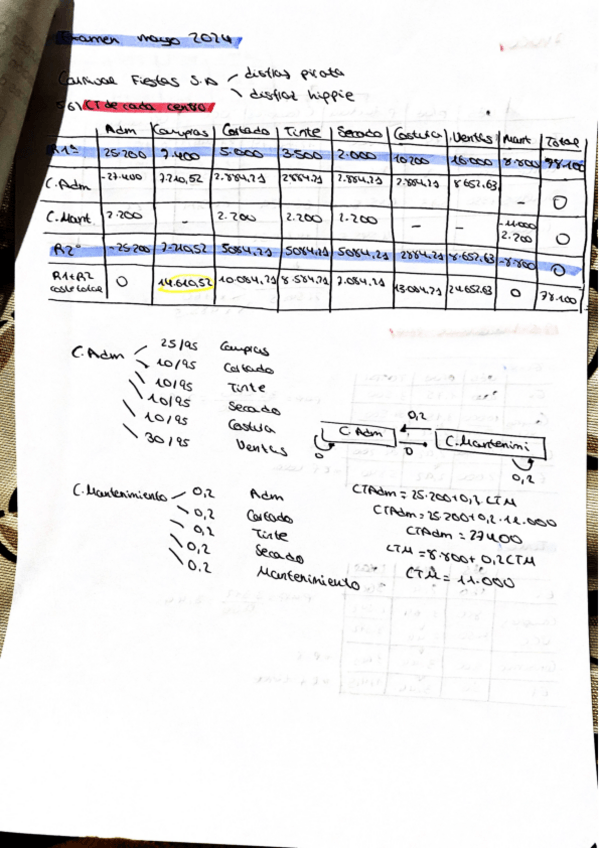 Examen mayo 2024
Carnival Fiestas S.A - disfraz pirata
- disfraz hippie
56) CT de cada centro.
Adm Compras Cortado Tinte Secado Costura Ventas Mant Total
R1º 25.200 7.400 5.000 3.500 2.000 10.200 16.000 8.800 78.100
C.Adm -27.400 7.210,52 2.884,21 2.884,21 2.884,21 2.884,21 8.652,63 - 0
C.Mant. 2.200 - 2.200 2.200 2.200 - - -11.000 2.200 0
R2º -25.200 7.210,52 5084,21 5084,21 5084,21 2884,21 8.652,63 -8.800 0
R1+R2 coste total 0 14.610,52 10.084,21 8.584,21 7.084,21 13.084,21 24.652,63 0 78.100
C.Adm 25/95 Compras
10/95 Cortado
10/95 Tinte
10/95 Secado
10/95 Costura
30/95 Ventas
0,2
C.Adm C.Mantenimi
0 0 0,2
C.Mantenimiento 0,2 Adm
0,2 Cortado
0,2 Tinte
0,2 Secado
0.2 Mantenimiento
CTAdm = 25.200+0,2.CTM
CTAdm = 25.200+0,2.11.000
CTAdm = 27400
CTM = 8.800+0,2CTM
CTM = 11.000